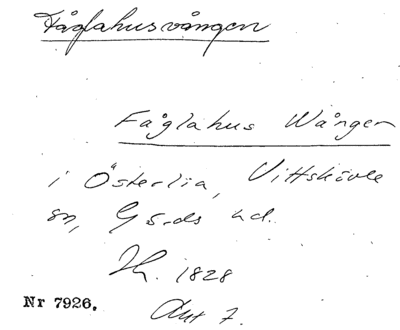 Fåglahusvången
Fåglahus Wången
i Österlia, Vittskövle
sn, Gärds hd.
Sk. 1828
Akt 7.
Nr 7926.